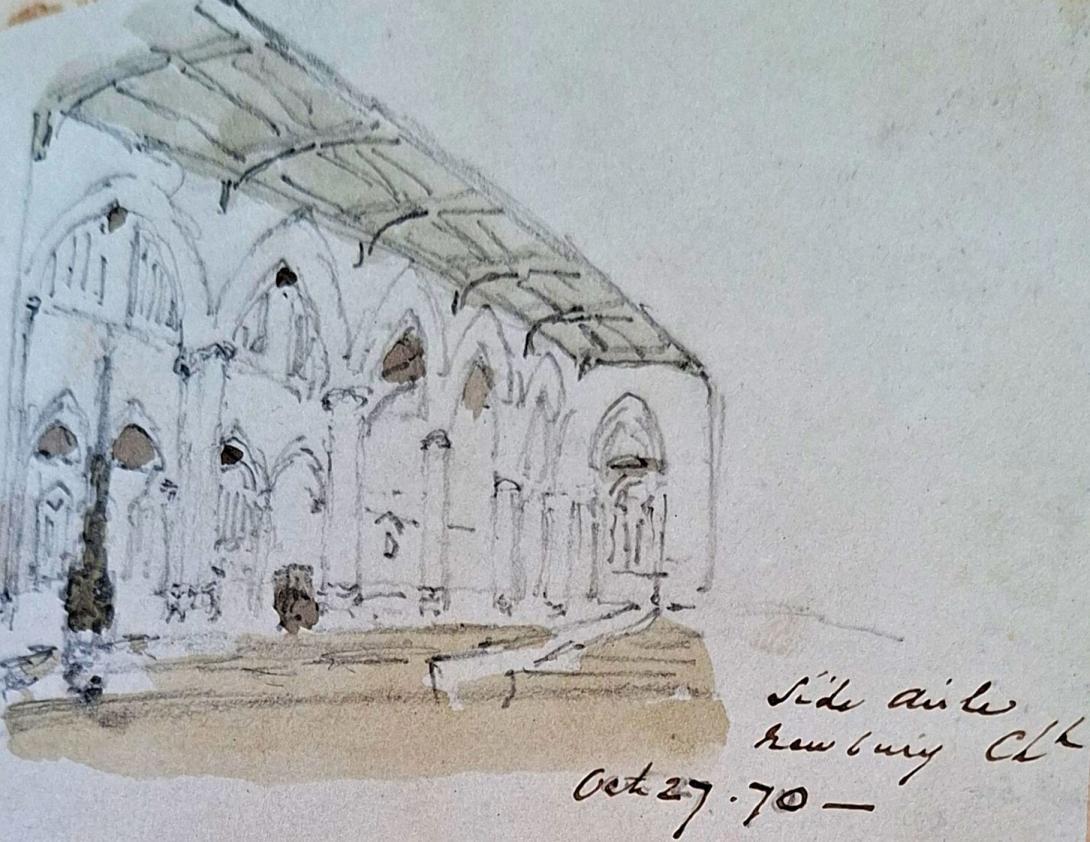 Side aisle
Newbury Chh
Oct 27.70—